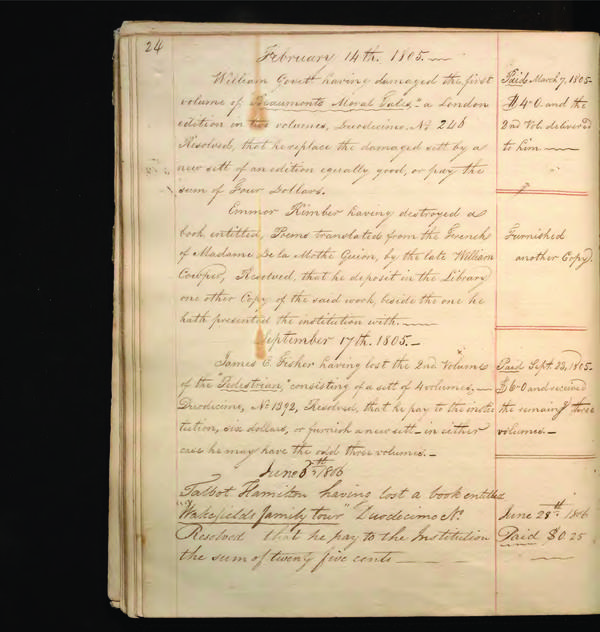 24
February 14th. 1805.
William Govett having damaged the first
volume of "Beaumonts Moral Tales," a London
edition in two volumes, Duodecimo, No. 246
Resolved, that he replace the damaged sett by a
new sett of an edition equally good, or pay the
sum of Four Dollars.
Paid March 7, 1805.
$4-0 and the
2nd Vol. delivered
to him.
Emmor Kimber having destroyed a
book entitled, Poems translated from the French
of Madame De la Mothe Guion, by the late William
Cowper, Resolved, that he deposit in the Library
one other Copy of the said work, beside the one he
hath presented the institution with.
Furnished
another Copy.
September 17th. 1805.
James C. Fisher having lost the 2nd Volume
of the "Pedestrian," consisting of a sett of 4 volumes,
Duodecimo, No. 1392, Resolved, that he pay to the insti
tution, six dollars, or furnish a new sett in either
case he may have the odd three volumes.
Paid Sept. 23, 1805.
$6-0 and received
the remaing three
volumes.
June 5th, 1806
Talbot Hamilton having lost a book entitled
"Wakefields family tour" Duodecimo No.
Resolved that he pay to the Institution
the sum of twenty five cents
June 28th. 1806
Paid $0.25